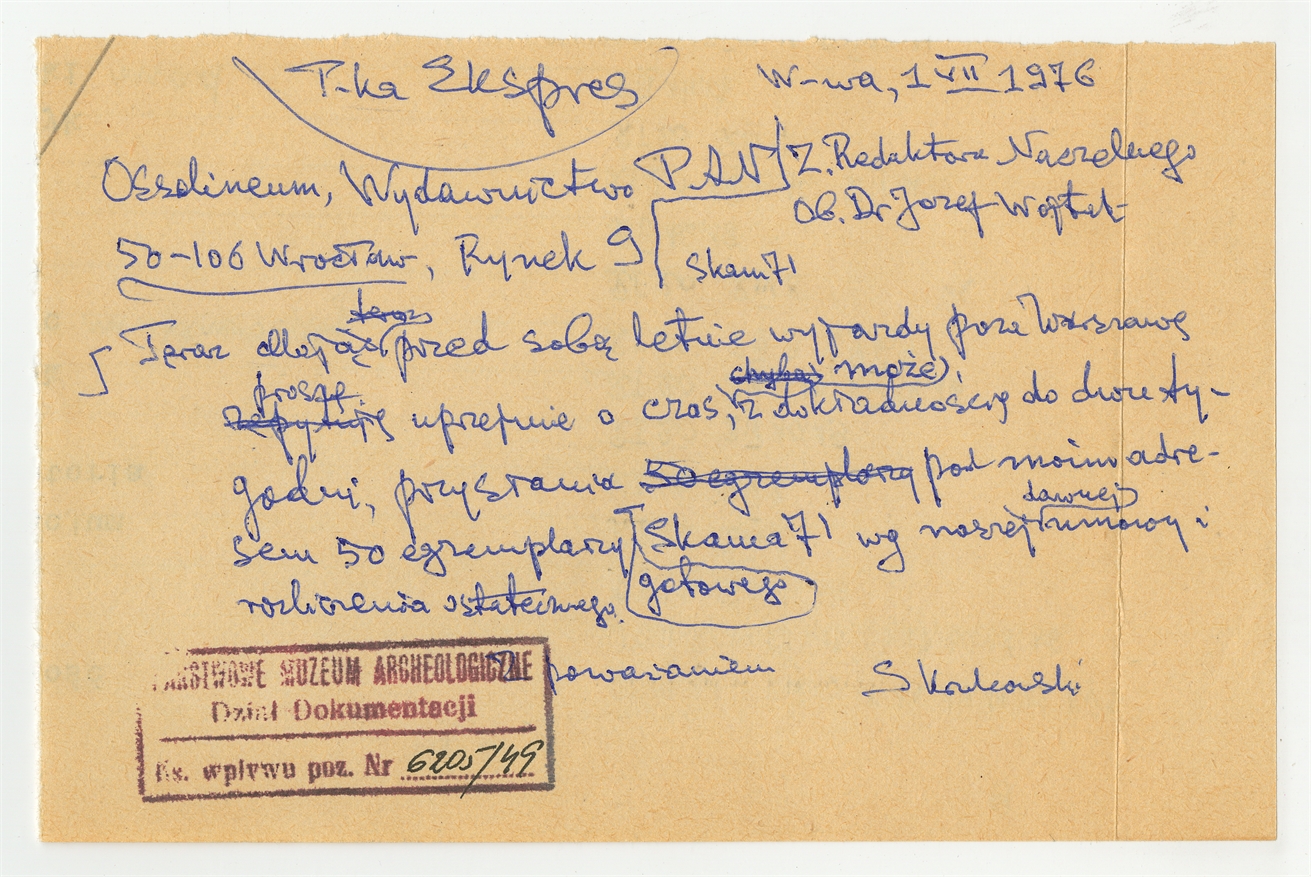 T-ka Ekspres
W-wa, 1 VII 1976
Ossolineum, Wydawnictwo PAN
50-106 Wrocław, Rynek 9
Z. Redaktora Naczelnego
Ob. Dr Józef
Skam 71
teraz
Teraz przed sobą letnie wyjazdy poza Warszawę
proszę chyba może
uprzejmie o czas, z dokładnością do dwu ty-
godni, przysłania 50 egzemplarzy pod moim adre-
dawnej
sem 50 egzemplarzy Skama 71 wg naszej umowy i
rozliczenia ostatecznego gotowego
Z poważaniem S Krukowski
PAŃSTWOWE MUZEUM ARCHEOLOGICZNE
Dział Dokumentacji
Ks. wpływu poz. Nr 6205/49